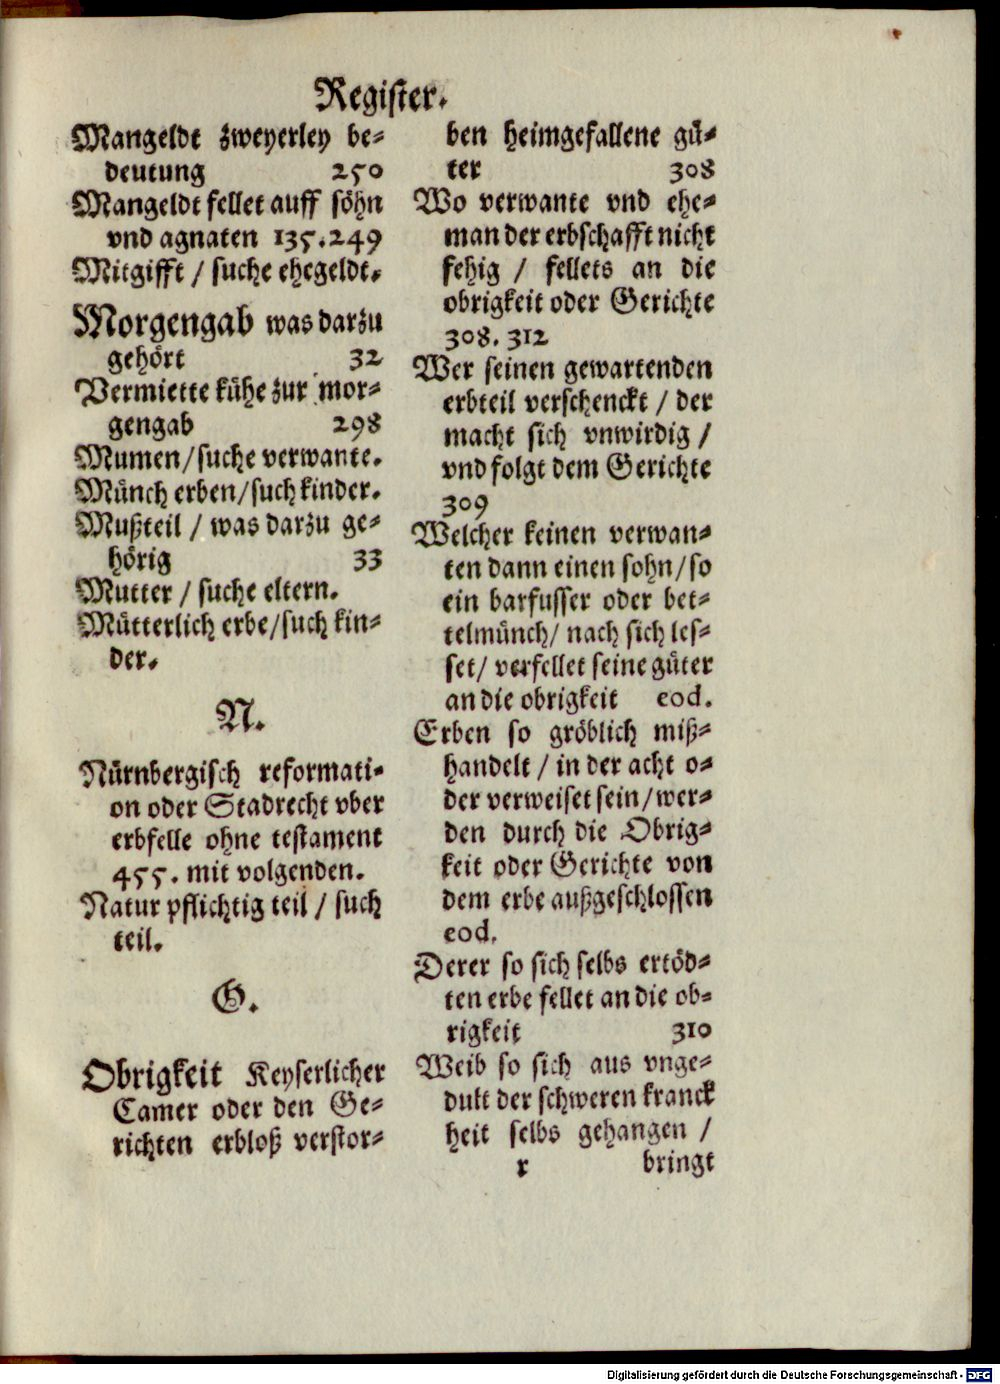 Register.
Mangeldt zweyerley be-
deutung 250
Mangeldt fellet auff söhn
vnd agnaten 135.249
Mitgifft / suche ehegeldt.
Morgengab was darzu
gehört 32
Vermiette kühe zur mor-
gengab 298
Mumen/suche verwante.
Münch erben/such kinder.
Mußteil / was darzu ge-
hörig 33
Mutter / suche eltern.
Mütterlich erbe/such kin-
der.
N.
Nürnbergisch reformati-
on oder Stadrecht vber
erbfelle ohne testament
455. mit volgenden.
Natur pflichtig teil / such
teil.
O.
Obrigkeit Keyserlicher
Camer oder den Ge-
richten erbloß verstor-
ben heimgefallene gü-
ter 308
Wo verwante vnd ehe-
man der erbschafft nicht
fehig / fellets an die
obrigkeit oder Gerichte
308. 312
Wer seinen gewartenden
erbteil verschenckt / der
macht sich vnwirdig /
vnd folgt dem Gerichte
309
Welcher keinen verwan-
ten dann einen sohn/so
ein barfusser oder bet-
telmünch/ nach sich les-
set/ verfellet seine güter
an die obrigkeit eod.
Erben so gröblich miß-
handelt / in der acht o-
der verweiset sein/wer-
den durch die Obrig-
keit oder Gerichte von
dem erbe außgeschlossen
eod.
Derer so sich selbs ertöd-
ten erbe fellet an die ob-
rigkeit 310
Weib so sich aus vnge-
dult der schweren kranck
heit selbs gehangen /
r bringt
Digitalisierung gefördert durch die Deutsche Forschungsgemeinschaft - DFG